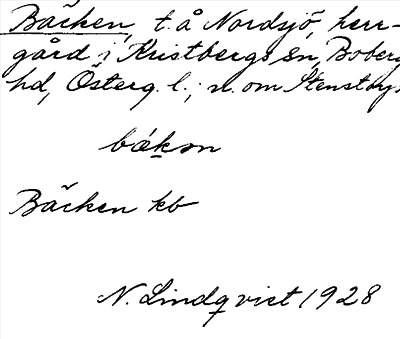 Bäcken, t. å Nordsjö, herr-
gård i Kristbergs sn, Boberg
hd, Österg. l.; n. om Stenstorps
bákən
Bäcken kb
N. Lindqvist 1928